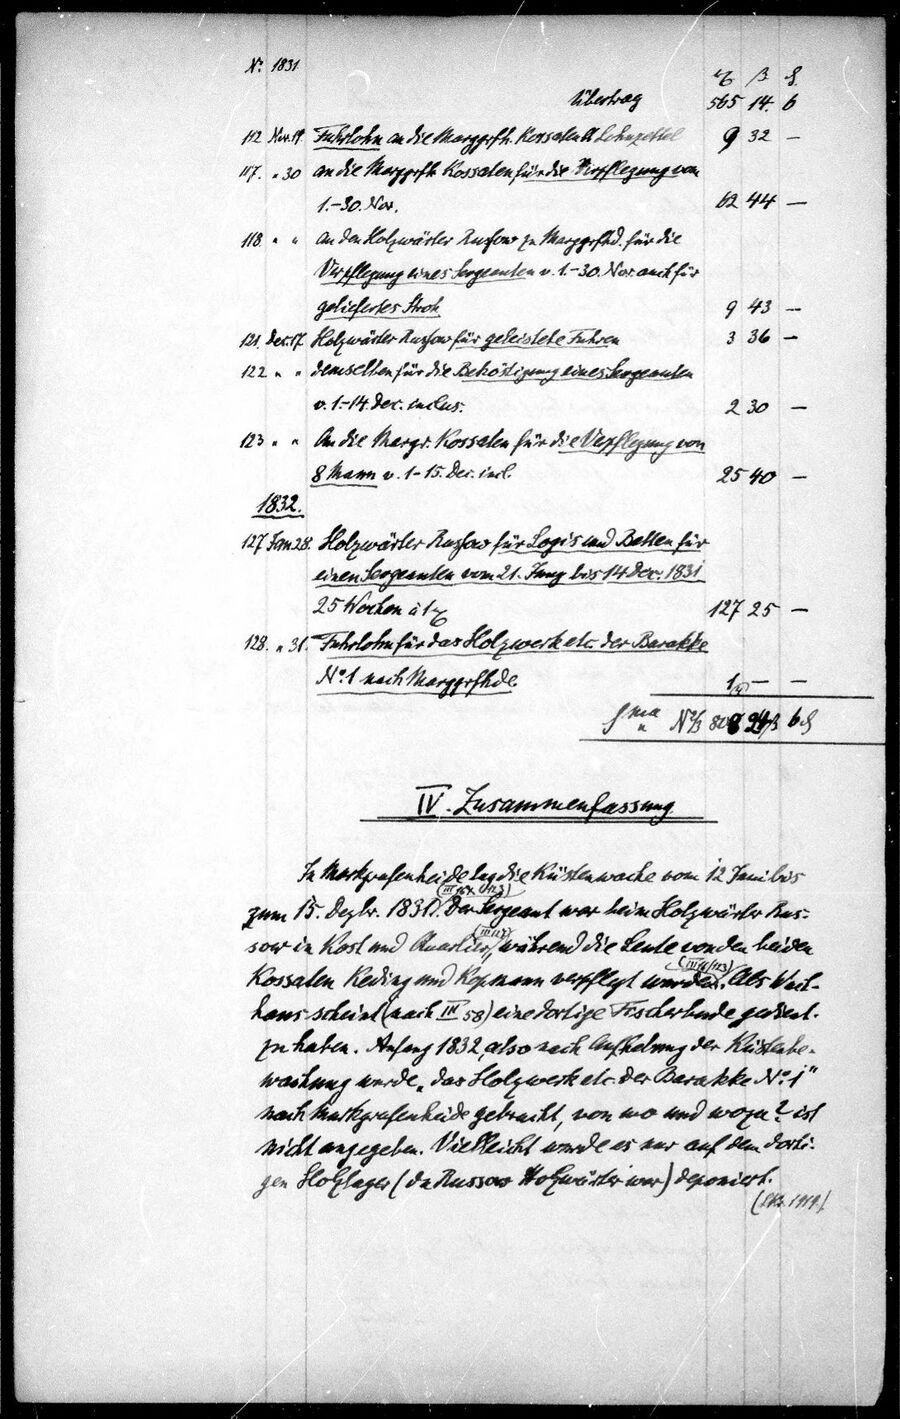 No. 1831
Übertrag 565 14. 6
112 Nov. 19. Fuhrlohn an die Marggrfh. Kossaten lt Lohnzettel 9 32 —
117. " 30 an die Marggrfh Kossaten für die Verpflegung von
1.–30. Nov. 62 44 —
118. " " an den Holzwärter Russow zu Marggrfhd. für die
Verpflegung eines Sergeanten v. 1.–30. Nov auch für
geliefertes Stroh 9 43 —
121. Dec. 17. Holzwärter Russow für geleistete Fuhren 3 36 —
122 " " demselben für die Beköstigung eines Sergeanten
v. 1–14. Dec. inclus. 2 30 —
123 " " An die Margr. Kossaten für die Verpflegung von
8 Mann v. 1–15. Dec. incl. 25 40 —
1832.
127 Jan 28. Holzwärter Russow für Logis und Betten für
einen Sergeanten vom 21. Juny bis 14 Dec. 1831
25 Wochen à 127 25 —
128. " 31. Fuhrlohn für das Holzwerk etc. der Barakke
No. 1 nach Marggrfhde. 1 — —
Sma N 2/3 6
IV. Zusammenfassung
In Markgrafenheide lag die Küstenwache vom 12 Juni bis
(III 123)
zum 15. Dezbr. 1831. Der Sergeant war beim Holzwärter Rus-
(III 127)
sow in Kost und Quartier, während die Leute von den beiden
(III 123)
Kossaten Keding und Kopmann verpflegt wurden. Als Wach-
haus scheint (nach III 58) eine dortige Fischerbude gedient
zu haben. Anfang 1832, also nach Aufhebung der Küstenbe-
wachung wurde „das Holzwerk etc. der Barakke No. 1"
nach Markgrafenheide gebracht, von wo und wozu? ist
nicht angegeben. Vielleicht wurde es nur auf dem dorti-
gen Holzlager (da Russow Holzwärter war) deponiert.
1919)